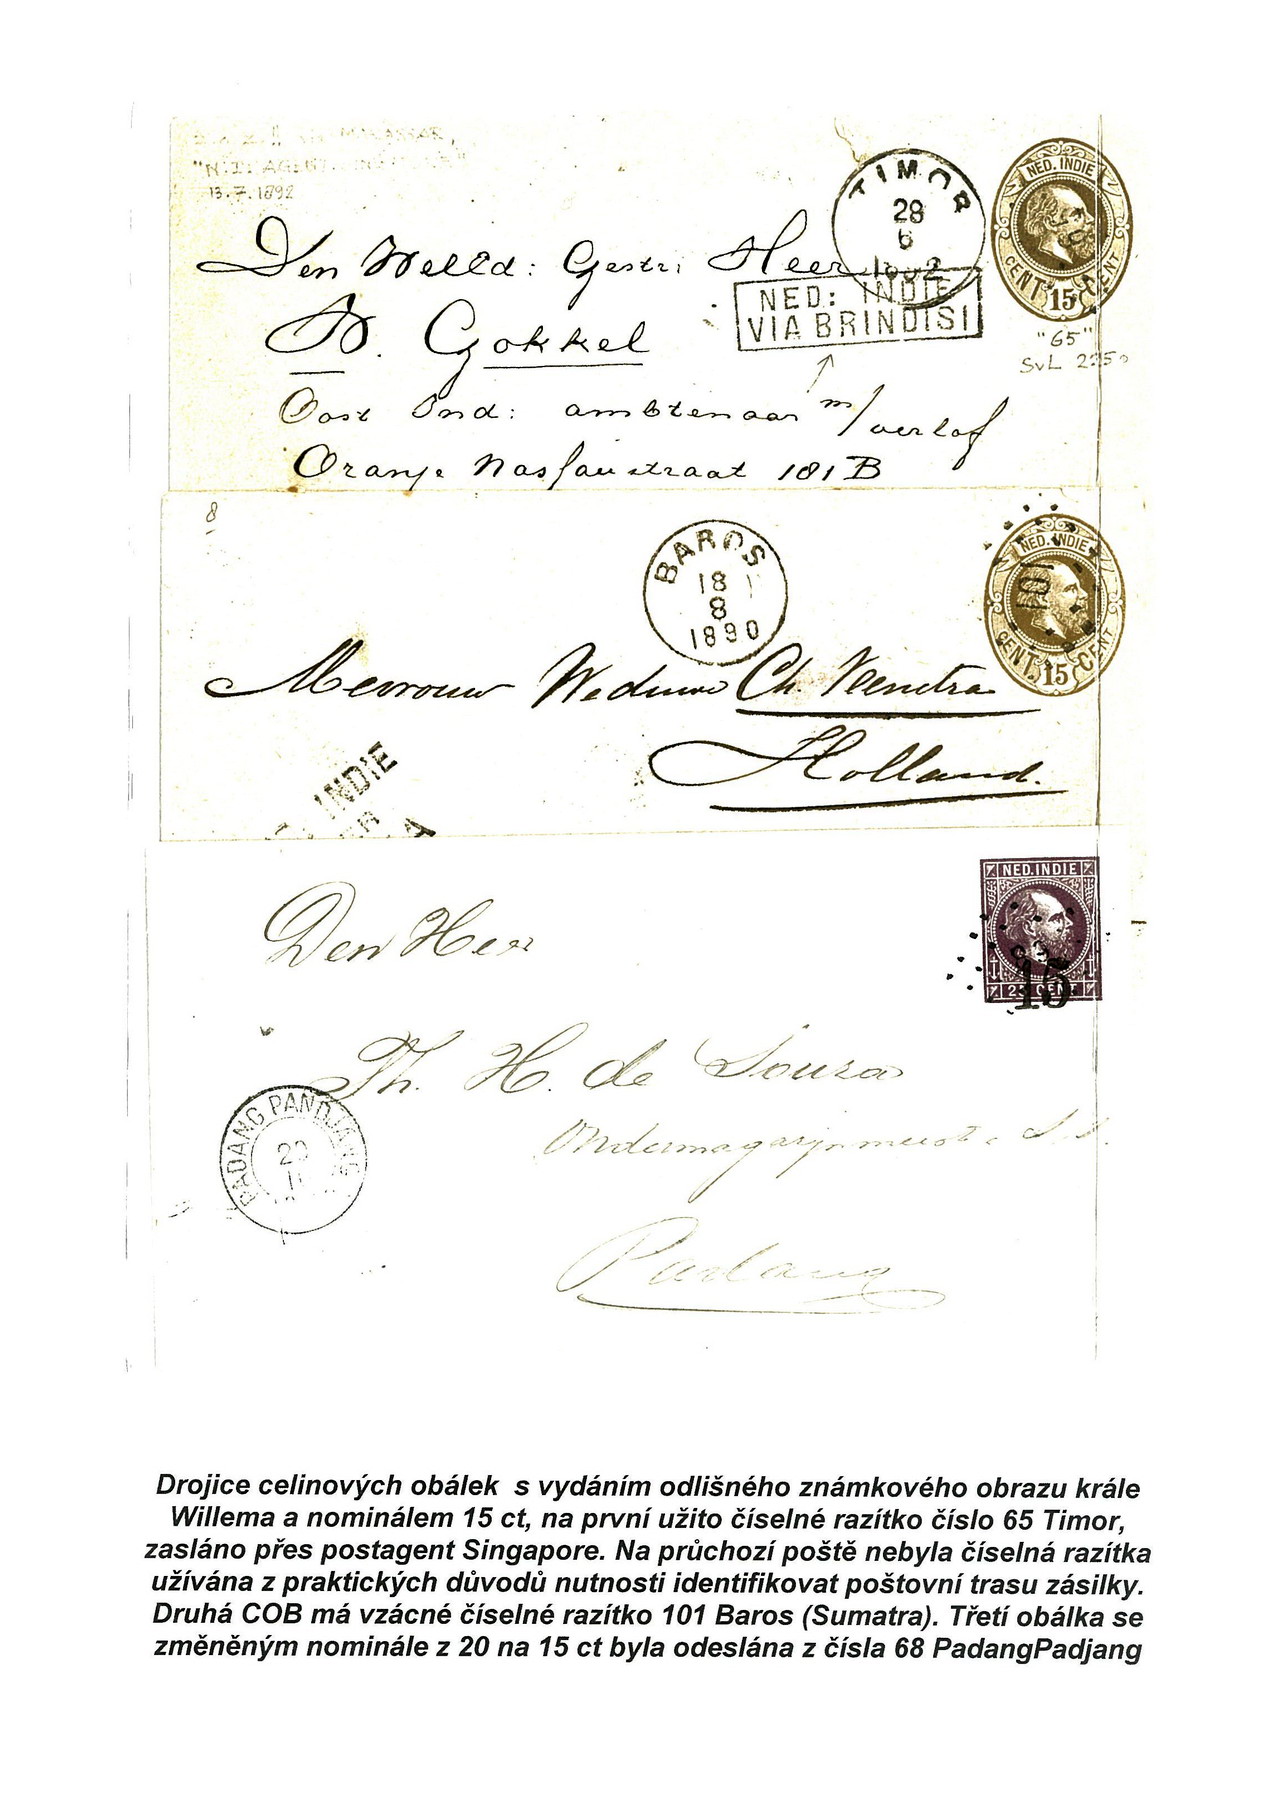 "N.I. AGENT. SINGAPORE"
13.7.1892
TIMOR
28
6
1892
NED. INDIE
15
CENT CENT
Den Weled: Gestr: Heer
NED: INDIE
VIA BRINDISI
"65"
SvL 225
A. Gokkel
Oost Ind: ambtenaar m/verlof
Oranje Nassaustraat 181 B
8
BAROS
18
8
1890
NED. INDIE
101
CENT 15 CENT
Mevrouw Weduwe Ch. Veenstra
Holland.
INDIE
NED. INDIE
15
CENT
Den Heer
Th. H. de Souza
PADANG PANDJANG
20
Ondermagazijnmeester S.S.
Padang
Drojice celinových obálek s vydáním odlišného známkového obrazu krále
Willema a nominálem 15 ct, na první užito číselné razítko číslo 65 Timor,
zasláno přes postagent Singapore. Na průchozí poště nebyla číselná razítka
užívána z praktických důvodů nutnosti identifikovat poštovní trasu zásilky.
Druhá COB má vzácné číselné razítko 101 Baros (Sumatra). Třetí obálka se
změněným nominále z 20 na 15 ct byla odeslána z čísla 68 PadangPadjang